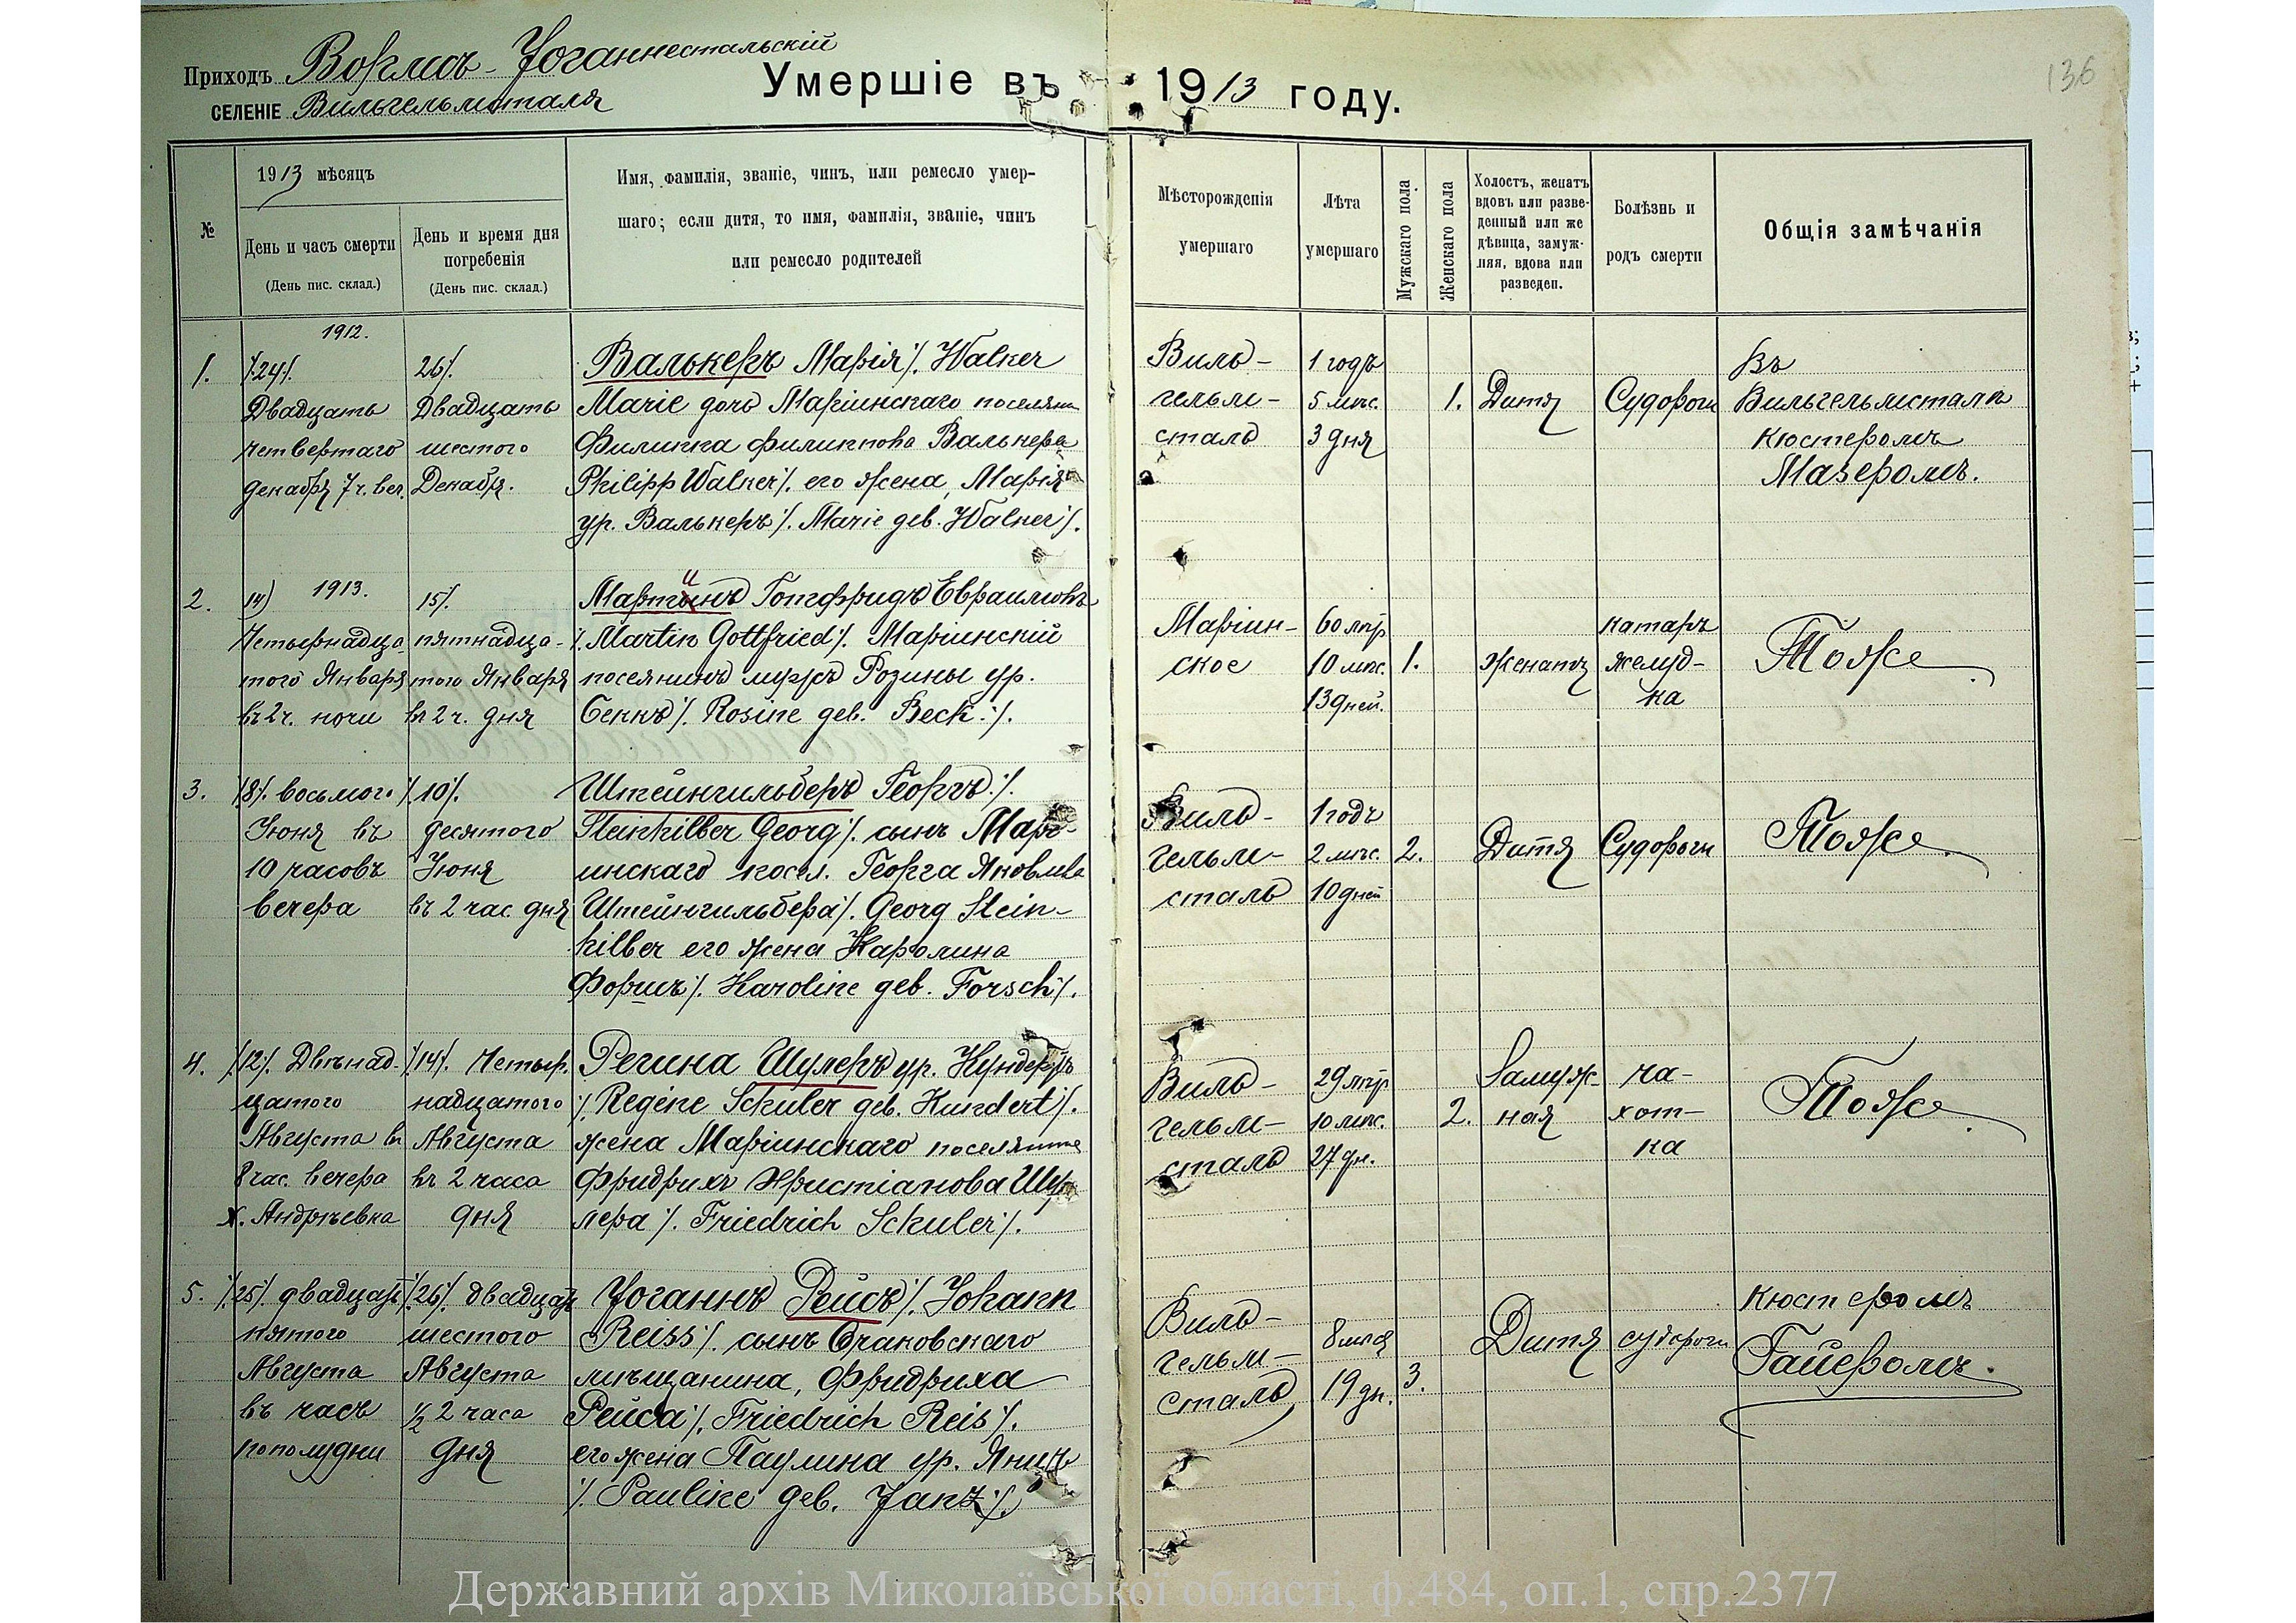 Приходъ Вормсъ-Іоганнестальскій
селеніе Вильгельмсталя
Умершіе въ 1913 году.
136
№
1913 мѣсяцъ
День и часъ смерти
(День пис. склад.)
День и время дня
погребенія
(День пис. склад.)
Имя, фамилія, званіе, чинъ, или ремесло умер-
шаго; если дитя, то имя, фамилія, званіе, чинъ
или ремесло родителей
Мѣсторожденія
умершаго
Лѣта
умершаго
Мужскаго пола
Женскаго пола
Холостъ, женатъ
вдовъ или разве-
денный или же
дѣвица, замуж-
няя, вдова или
разведен.
Болѣзнь и
родъ смерти
Общія замѣчанія
1.
1912.
/.24/.
Двадцать
четвертаго
декабря 7 ч. веч.
26/.
Двадцать
шестого
Декабря.
Валькеръ Марія /. Walker
Marie дочь Маріинскаго поселянина
Филиппа Филиппова Валькера
Philipp Walker /. его жена, Марія
ур. Валькеръ /. Marie geb. Walker /.
Виль-
гельм-
сталь
1 годъ
5 мѣс.
3 дня
1.
Дитя
Судороги
Въ
Вильгельмсталѣ
кюстеромъ
Мазеромъ.
2.
1913.
14)
Четырнадца-
того Января
въ 2 ч. ночи
15/.
пятнадца-
того Января
въ 2 ч. дня
Мартинъ Готфридъ Евраимовъ
/. Martin Gottfried /. Маріинскій
поселянинъ мужъ Розины ур.
Беккъ /. Rosine geb. Beck /.
Маріин-
ское
60 лѣтъ
10 мѣс.
13 дней.
1.
Женатъ
катаръ
желуд-
ка
Тоже
3.
/8/. восьмого
Іюня въ
10 часовъ
вечера
/.10/.
десятого
Іюня
въ 2 час дня
Штейнгильберъ Георгъ /.
Steinhilber Georg /. сынъ Марі-
инскаго посел. Георга Яковлева
Штейнгильбера /. Georg Stein-
hilber его жена Каролина
Форшъ /. Karoline geb. Forsch /.
Виль-
гельм-
сталь
1 годъ
2 мѣс.
10 дней
2.
Дитя
Судороги
Тоже
4.
/.12/. Двѣнад-
цатого
Августа въ
8 час. вечера
х. Андрѣевка
/.14/. Четыр.
надцатого
Августа
въ 2 часа
дня
Регина Шулеръ ур. Кундертъ
/. Regine Schuler geb. Kundert /.
жена Маріинскаго поселянина
Фридрихъ Христіанова Шу-
лера /. Friedrich Schuler /.
Виль-
гельм-
сталь
29 лѣтъ
10 мѣс.
27 дн.
2.
Замуж-
ная
ча-
хот-
ка
Тоже
5.
/.25/. двадцать
пятого
Августа
въ часъ
пополудни
/.26/. двадцать
шестого
Августа
½ 2 часа
дня
Іоганнъ Рейсъ /. Johann
Reiss /. сынъ Очаковскаго
мѣщанина, Фридриха
Рейса /. Friedrich Reis /.
его жена Паулина ур. Янцъ
/. Pauline geb. Janz /.
Виль-
гельм-
сталь
8 мѣся
19 дн.
3.
Дитя
судороги
Кюстеромъ
Гайеромъ.
Державний архів Миколаївської області, ф.484, оп.1, спр.2377